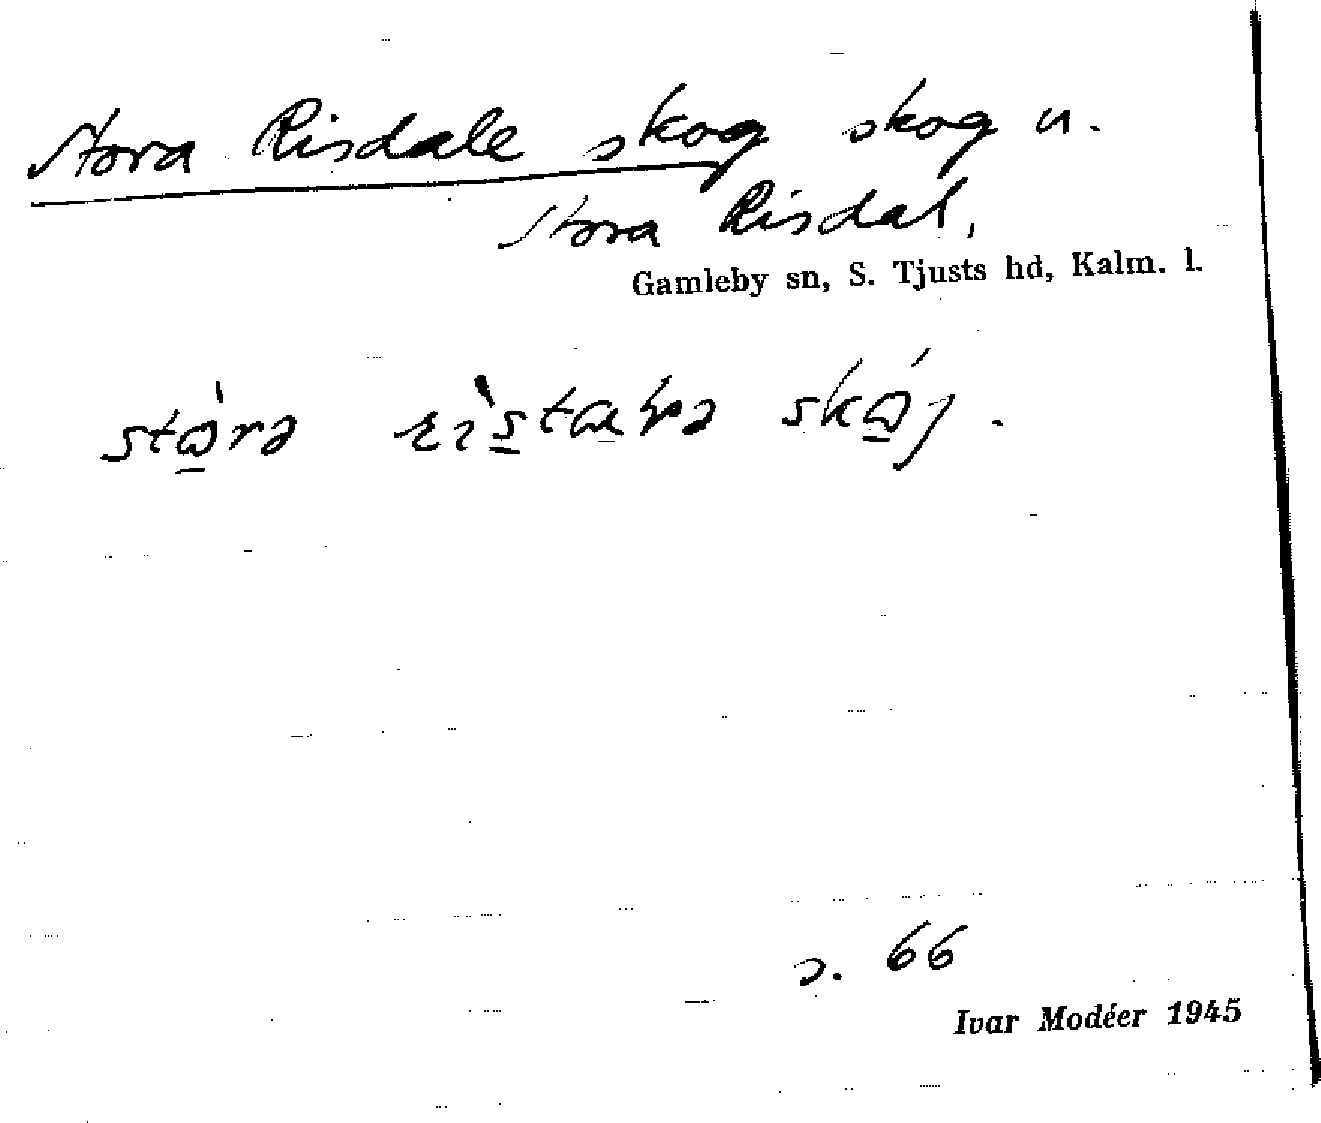 Stora Risdale skog skog u.
Stora Risdal,
Gamleby sn, S. Tjusts hd, Kalm. l.
s. 66
Ivar Modéer 1945